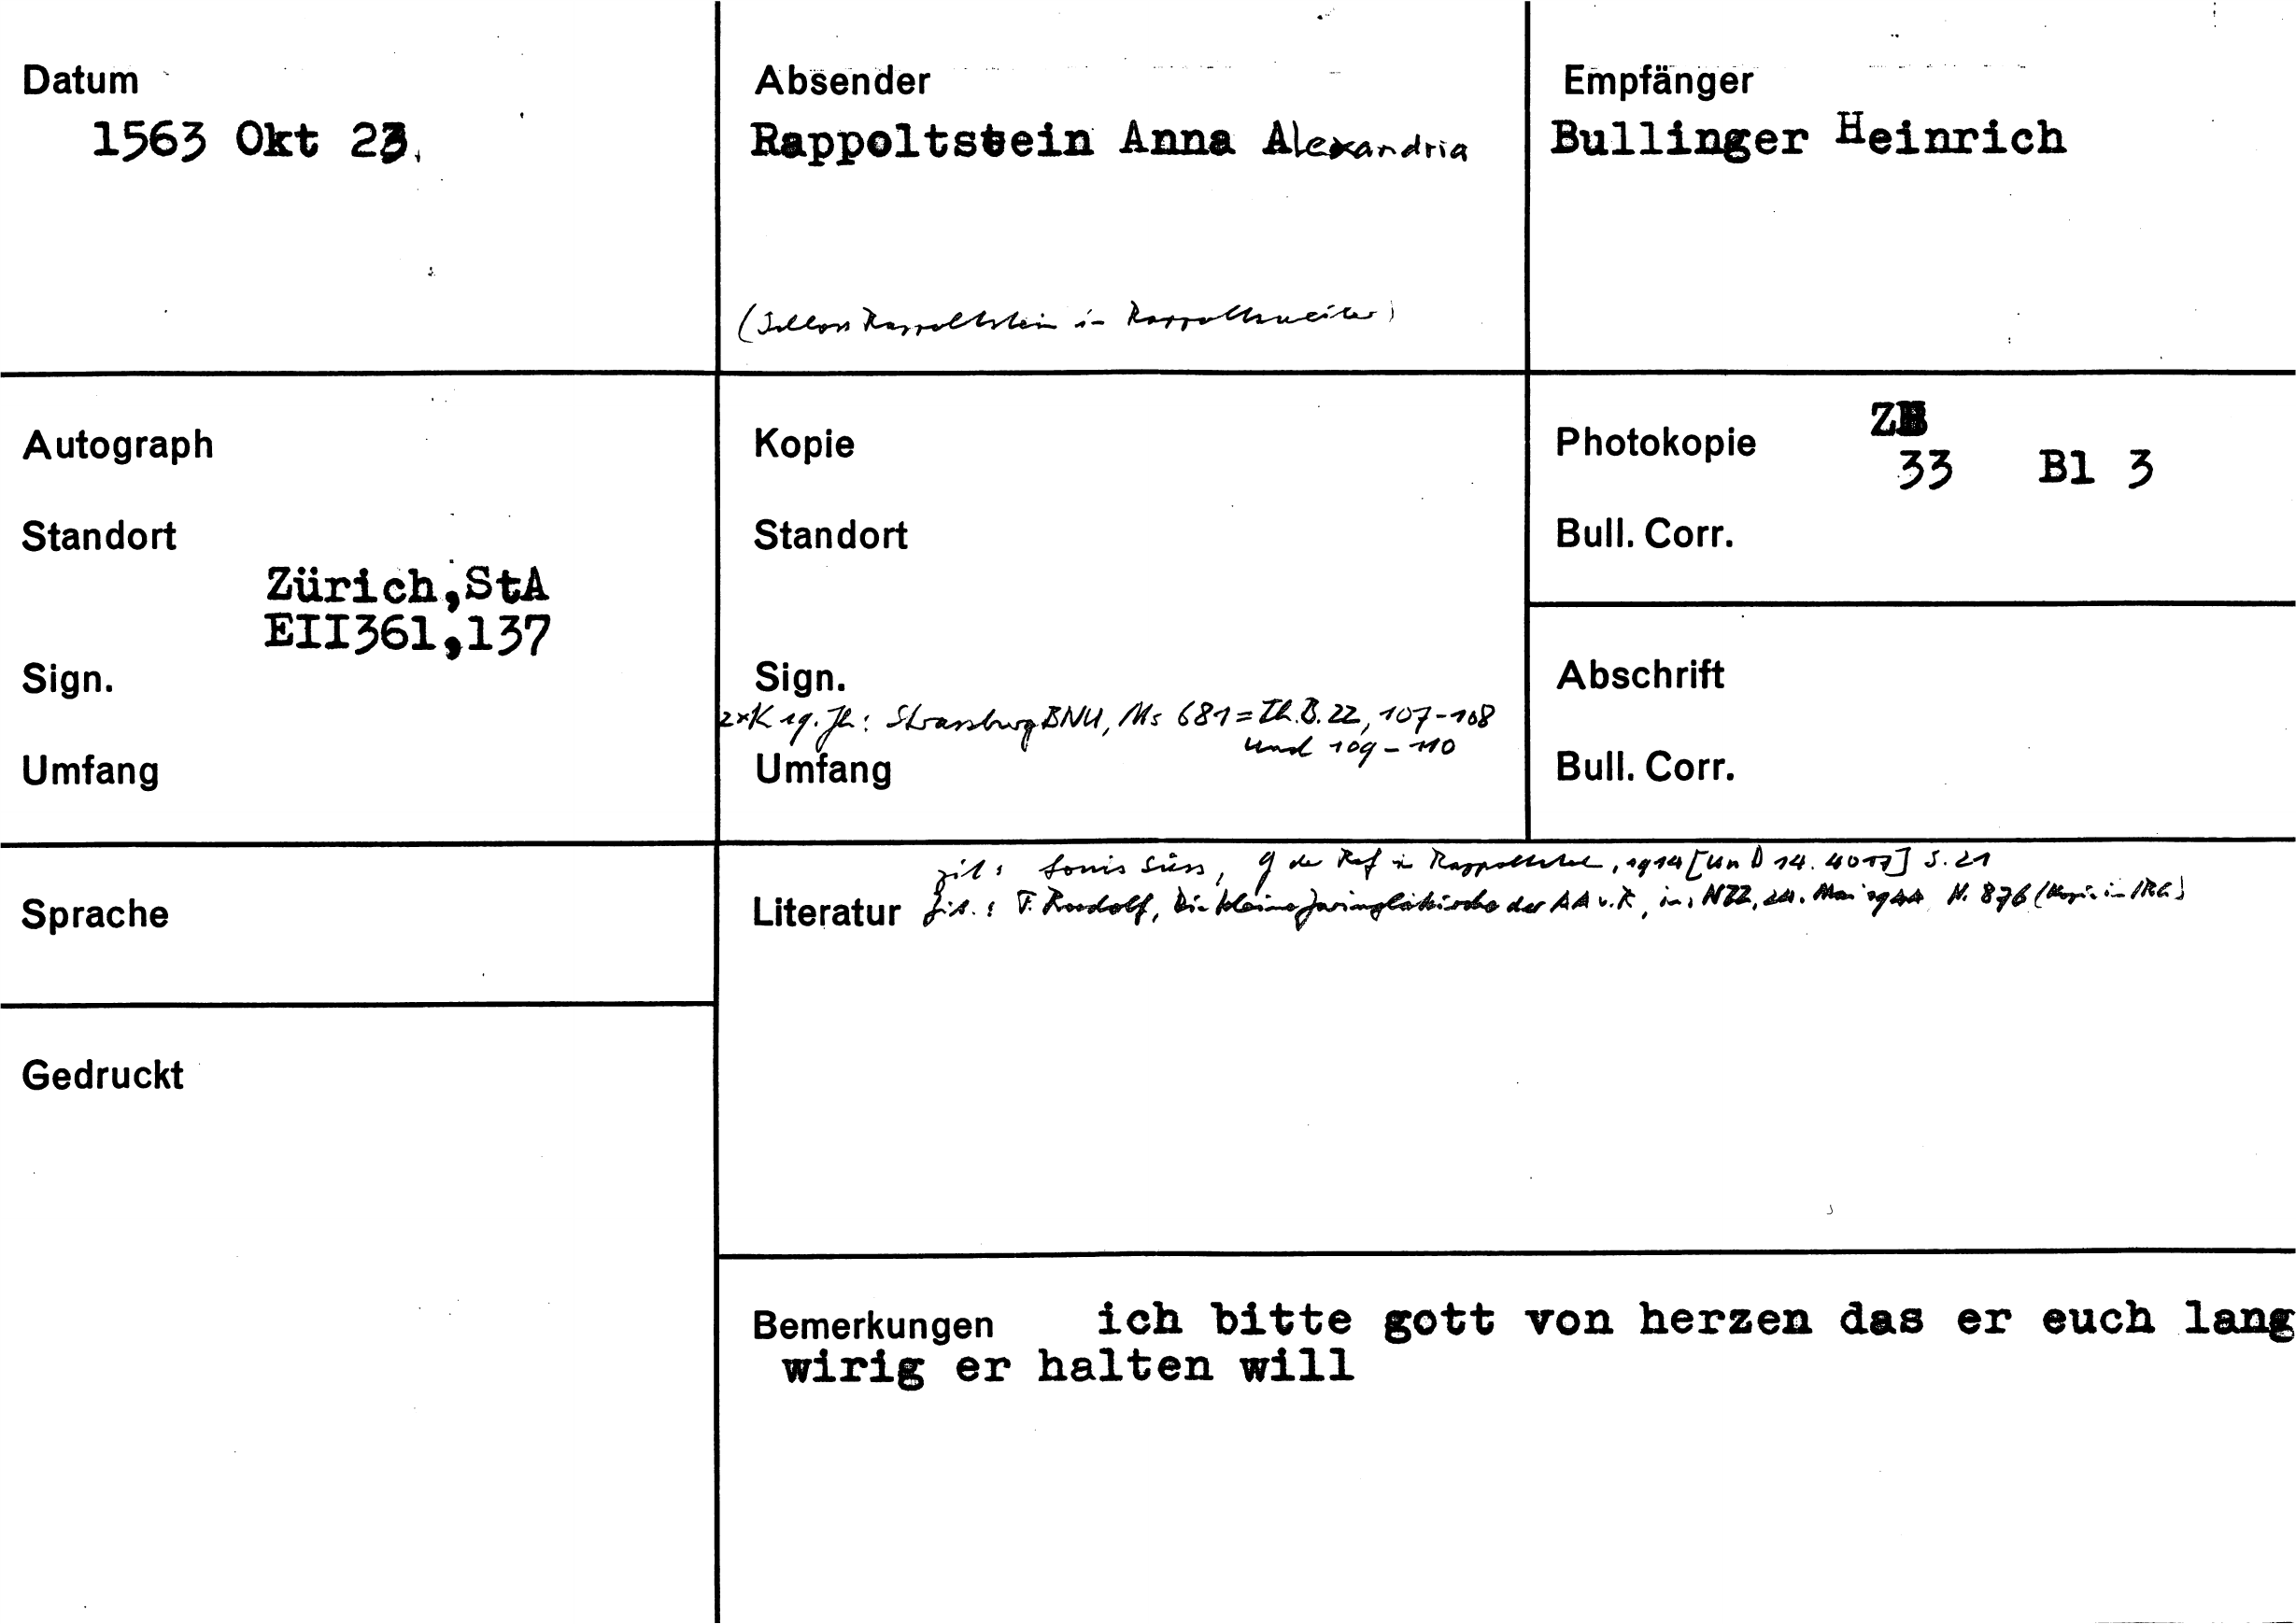 Datum
1563 Okt 23.
Absender
Rappoltstein Anna Alexandria
(Schloss Rappoltstein in Rappoltsweiler)
Empfänger
Bullinger Heinrich
Autograph
Standort
Zürich,StA
EII361,137
Sign.
Umfang
Kopie
Standort
Sign.
2xK 19. Jh: Strassburg BNU, Ms 681 = Th. B. 22, 107-108
und 109-110
Umfang
Photokopie ZB
33 Bl 3
Bull. Corr.
Abschrift
Bull. Corr.
Sprache
Gedruckt
zit: Louis Süss, G der Ref in 1914 [Un D 14. 4017] S. 21
Literatur Zit.: F. Rudolf, Die kleine der AA v. R, in: NZZ, Mai 1944 N. 876 (Kopie in IRG)
Bemerkungen ich bitte gott von herzen das er euch lang
wirig er halten will